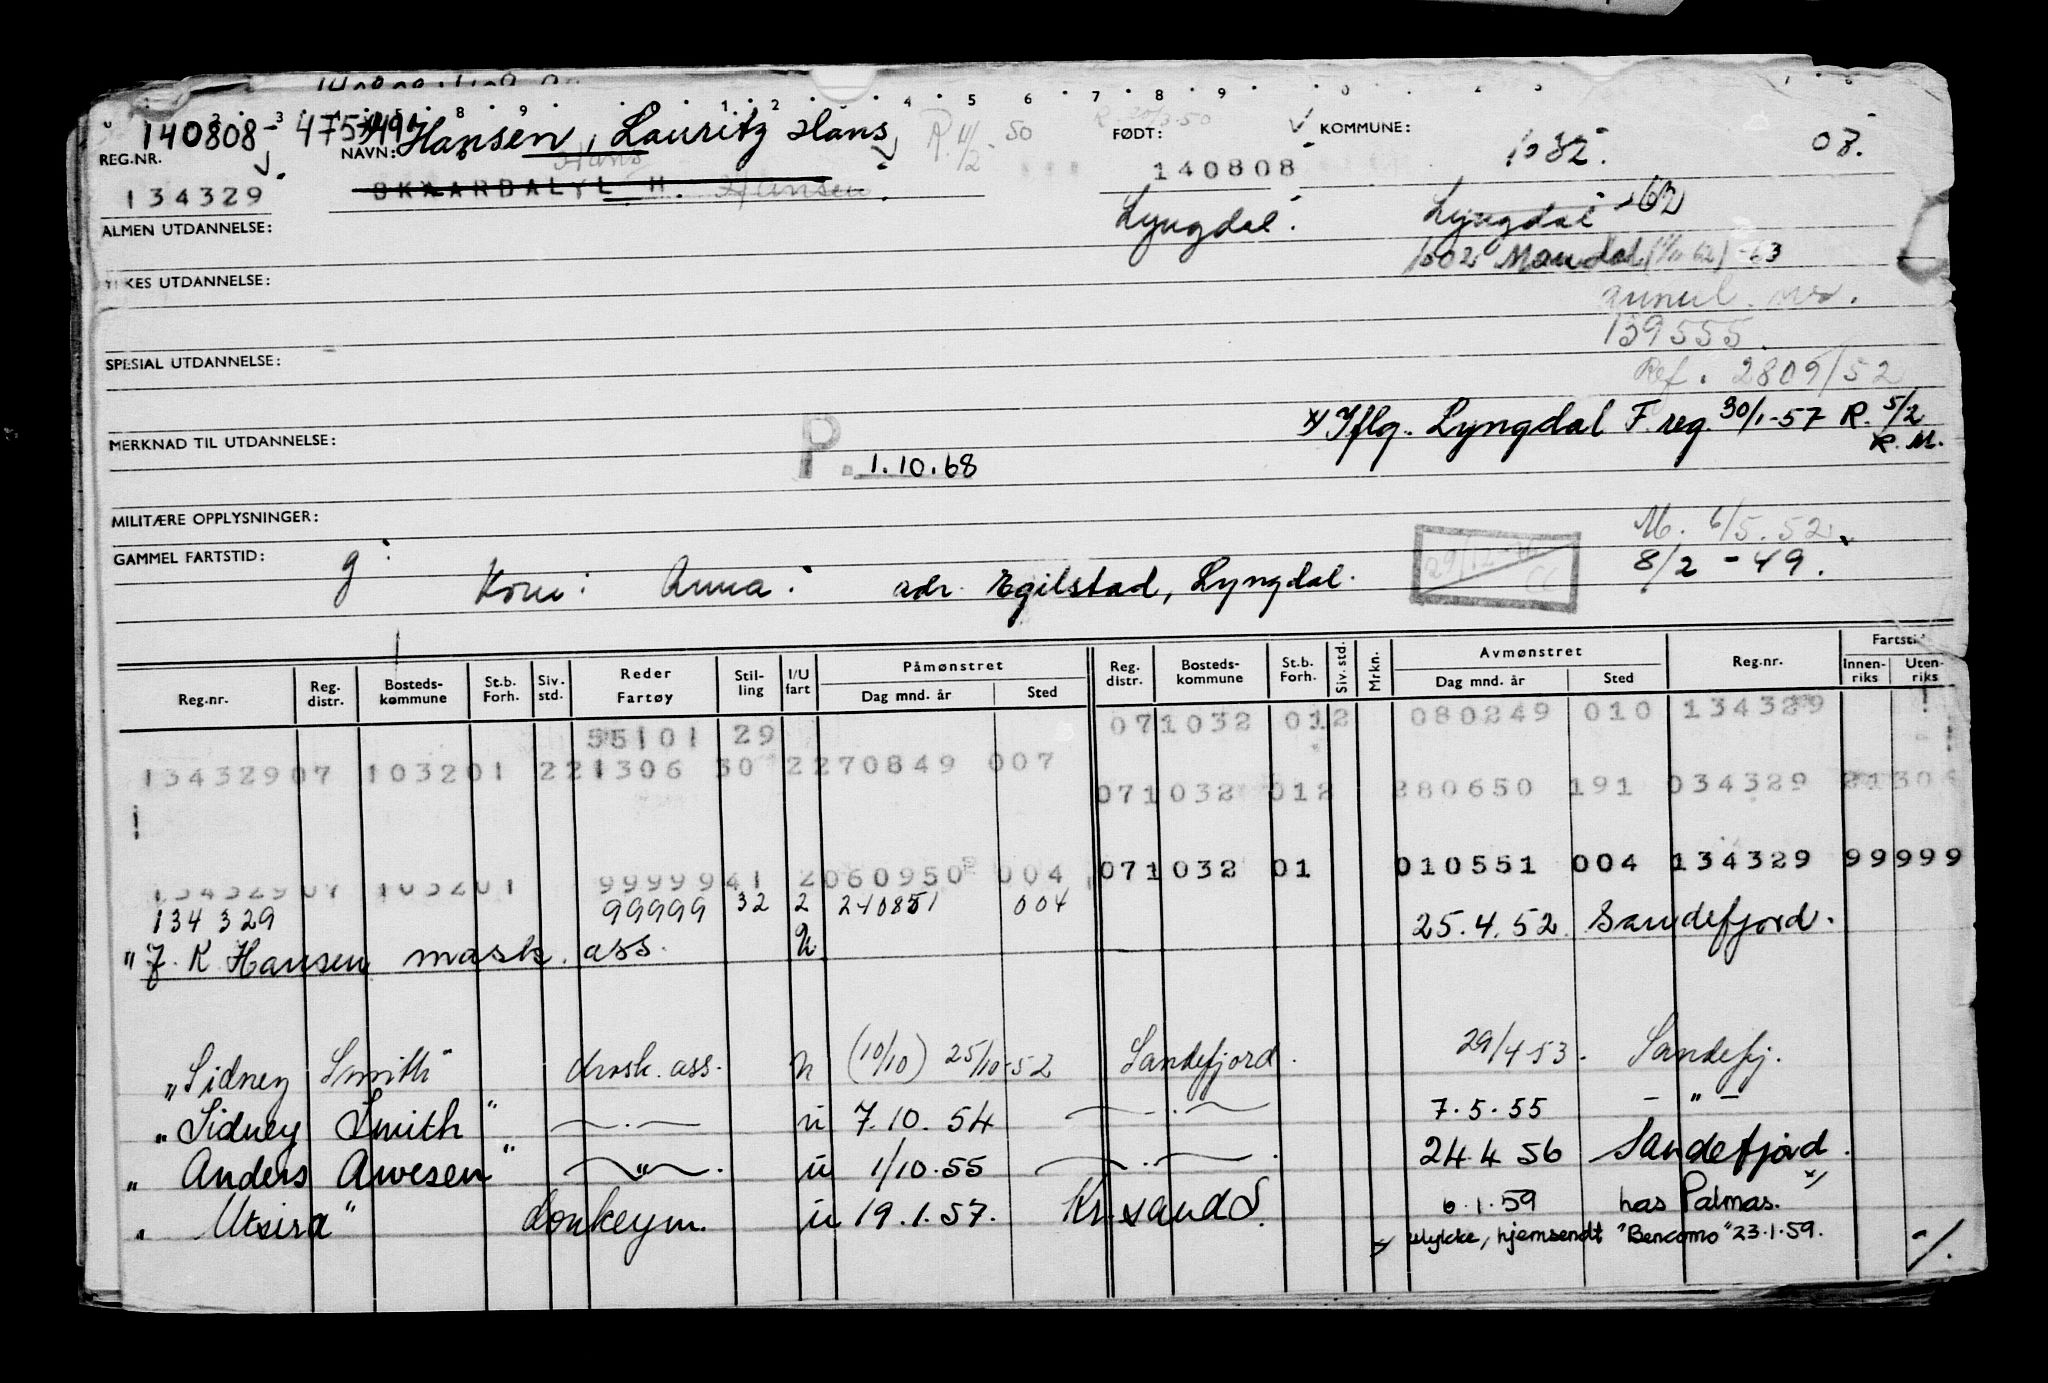 140808-47549 Hansen, Lauritz Hans R. 11/2 50 R. 20/3-50 FØDT: √ KOMMUNE: 1032. 03.
REG.NR. NAVN: Hans
134329 SKAARDAL, L H. Hansen. 140808
ALMEN UTDANNELSE: Lyngdal. Lyngdal -62
1002 Mandal -63
YRKES UTDANNELSE:
annul. nr.
139555
SPESIAL UTDANNELSE:
Ref. 2809/52
x) Iflg. Lyngdal F.reg. 30/1-57 R. 5/2
R.M.
MERKNAD TIL UTDANNELSE: P. 1.10.68
MILITÆRE OPPLYSNINGER:
M. 6/5.52
GAMMEL FARTSTID: g 8/2 - 49.
Kone: Anna. adr. Egilstad, Lyngdal.
Reg.nr. Reg. distr. Bosteds-kommune St.b. Forh. Siv. std. Reder Fartøy Stil-ling I/U fart Påmønstret Dag mnd. år Sted Reg. distr. Bosteds-kommune St.b. Forh. Siv. std. Mrkn. Avmønstret Dag mnd. år Sted Reg.nr. Fartstid Innen-riks Uten-riks
55101 29 071032 012 080249 010 134329
13432907 103201 221306 30 2270849 007
071032 012 280650 191 034329
071032 01 010551 004 134329 99999
13432907 103201 99999 41 2060950 004
134 329 99999 32 2 210851 004 25.4.52 Sandefjord.
" J. K Hansen mask. ass.
"Sidney Smith" drosk. ass. u (10/10) 25/10-52 Sandefjord. 29/4-53. Sandefj.
"Sidney Smith" — . — u 7.10.54 — . — 7.5.55 - " -
" Anders Arvesen" — " — . u 1/10.55 — . — . 24.4 56 Sandefjord.
" Utsira" donkeym. u 19.1.57. Kr.sand S. 6.1.59 Las Palmas. x)
x) ulykke, hjemsendt "Bencomo" 23.1.59. -/.